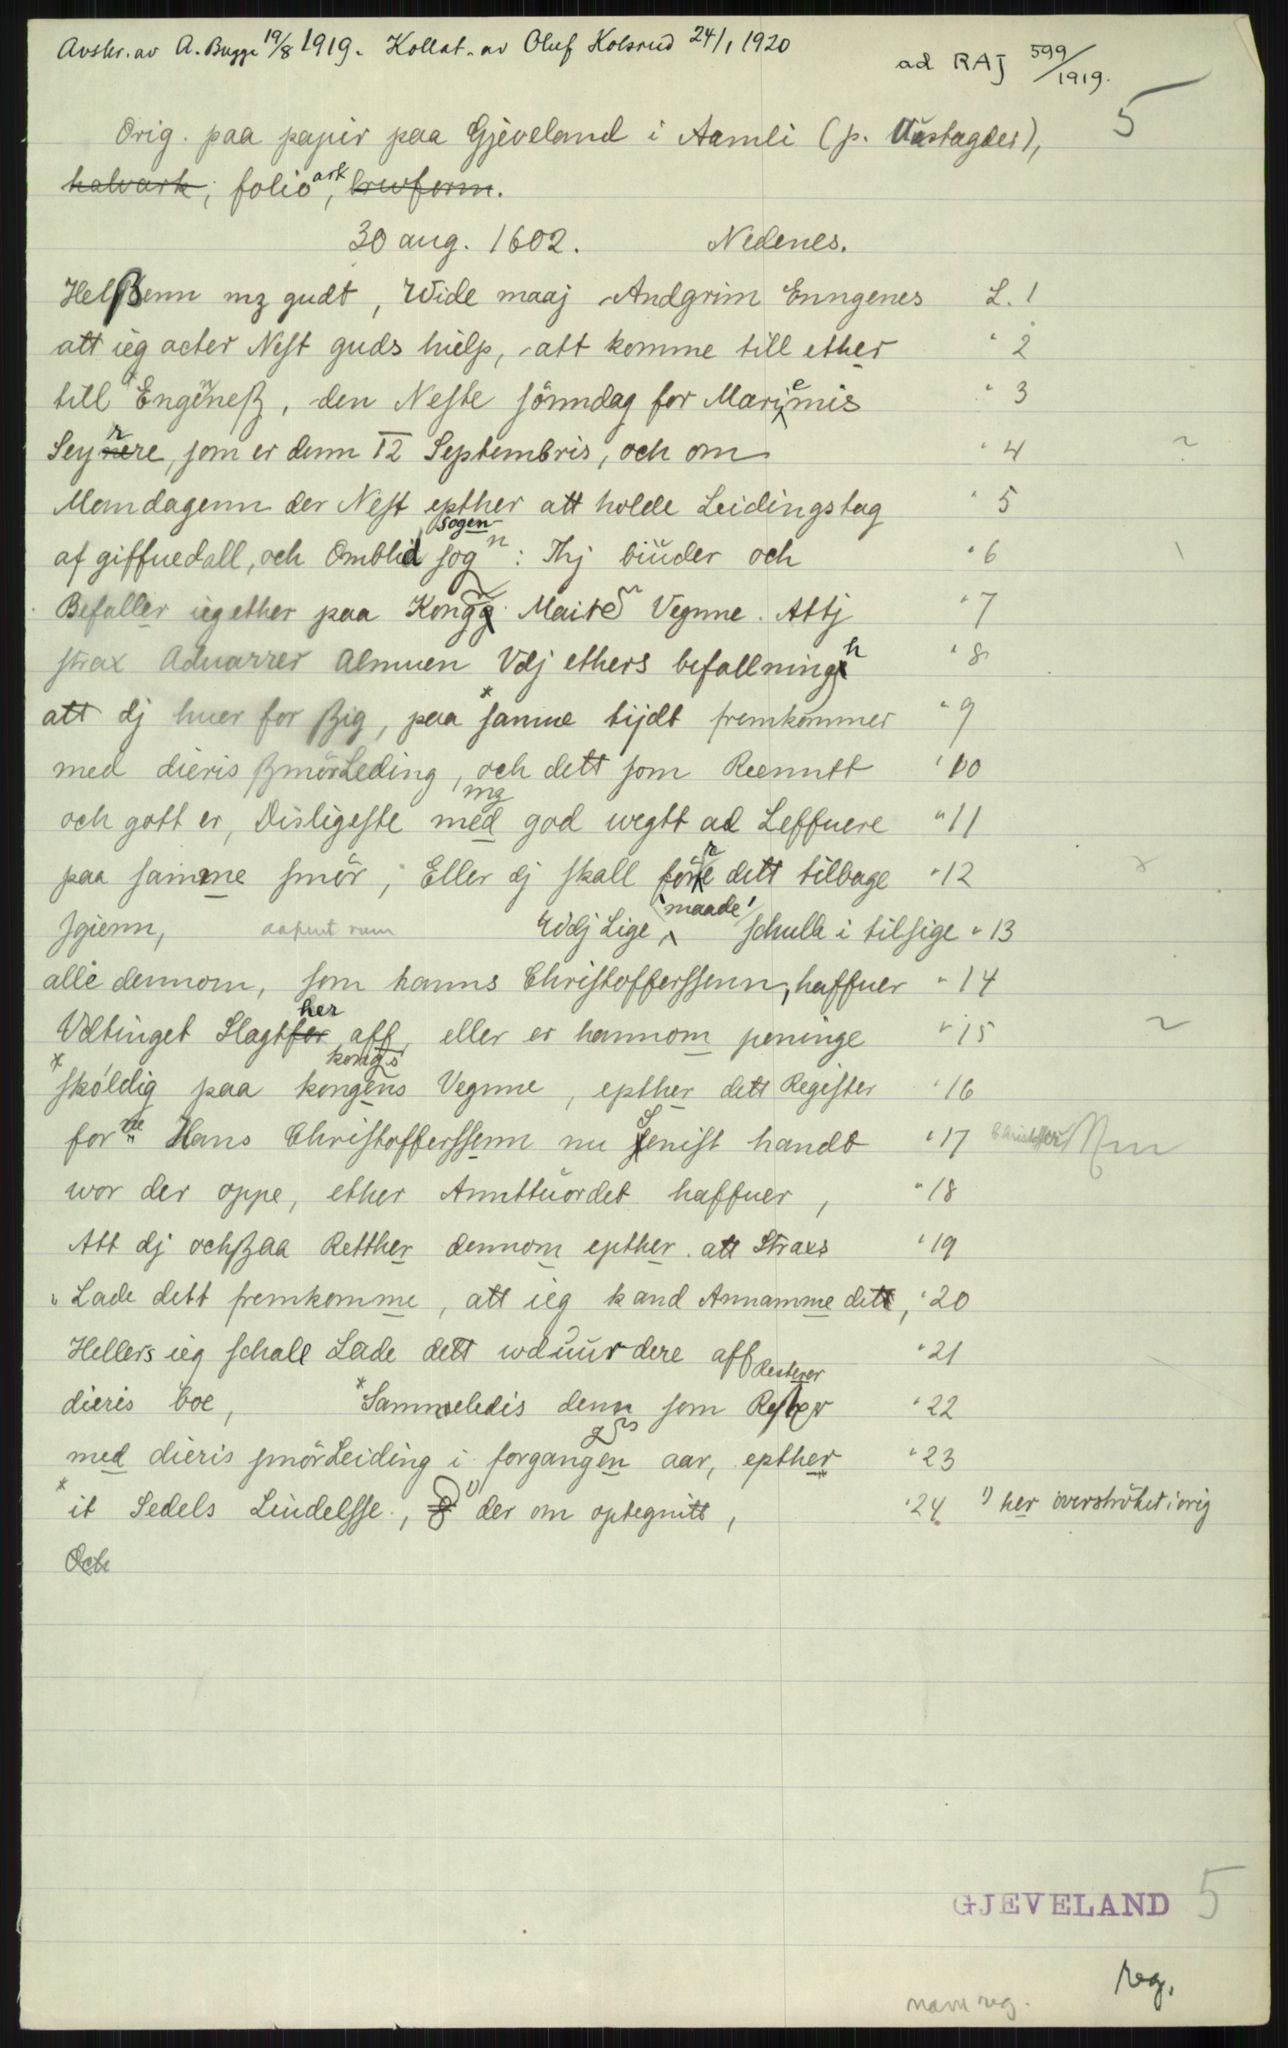 Avskr. av A. Bugge 19/8 1919. Kollat. av Oluf Kolsrud 24/1 1920
ad RAJ 599/1919.
5
Orig. paa papir paa Gjeveland i Aamli (p. Austagder),
halvark, folioark, brevform.
30 aug. 1602. Nedenes.
Helßenn mz gudt, Wide maaj Andgrim Enngenes L. 1
att ieg acter Nest guds hielp, att komme till ether " 2
till Engeneß, den Neste sönndag for Mariemis " 3
Seyrre, som er denn 12 Septembris, och om " 4
Mandagenn der Nest epther att holde Leidingstag " 5
af giffuedall, och Omblid sogen sogn : Thj biuder och " 6
Befaller ieg ether paa Kongg. Maits Vegnne. Attj " 7
strax Aduarrer Almuen Vdj ethers befallningh " 8
att dj huer for ßig, paa *samme tijdt fremkommer " 9
med dieris ßmörLeding, och dett som Reenntt " 10
och gott er, Disligeste mz med god wegtt ad Leffuere " 11
paa samme smör, Eller dj skall före dett tilbage " 12
Jgienn, aapent rum Wdj Lige 'maade' schulle i tilsige " 13
alle dennom, som hanns Christofferssenn, haffuer " 14
Vdtinget Slagtfor her aff, eller er hannom peninge " 15
*sköldig paa kongens kongs Vegnne, epther dett Register " 16
forne Hans Christofferssenn nu Senist handt " 17 Christoffer
wor der oppe, ether Annttuordet haffuer, " 18
Att dj ochßaa Retther dennom epther. att Straxs " 19
Lade dett fremkomme, att ieg kand Annamme dett, " 20
Hellers ieg schall Lade dett wduurdere aff " 21
dieris boe, *Sammeledis denn som Rester Resterer " 22
med dieris smörLeiding i forgangen aar, epther " 23
*it Sedels Liudelsse, 1) der om optegnitt, " 24 1) her overströket i orig
Och
GJEVELAND 5
reg.
navnreg.